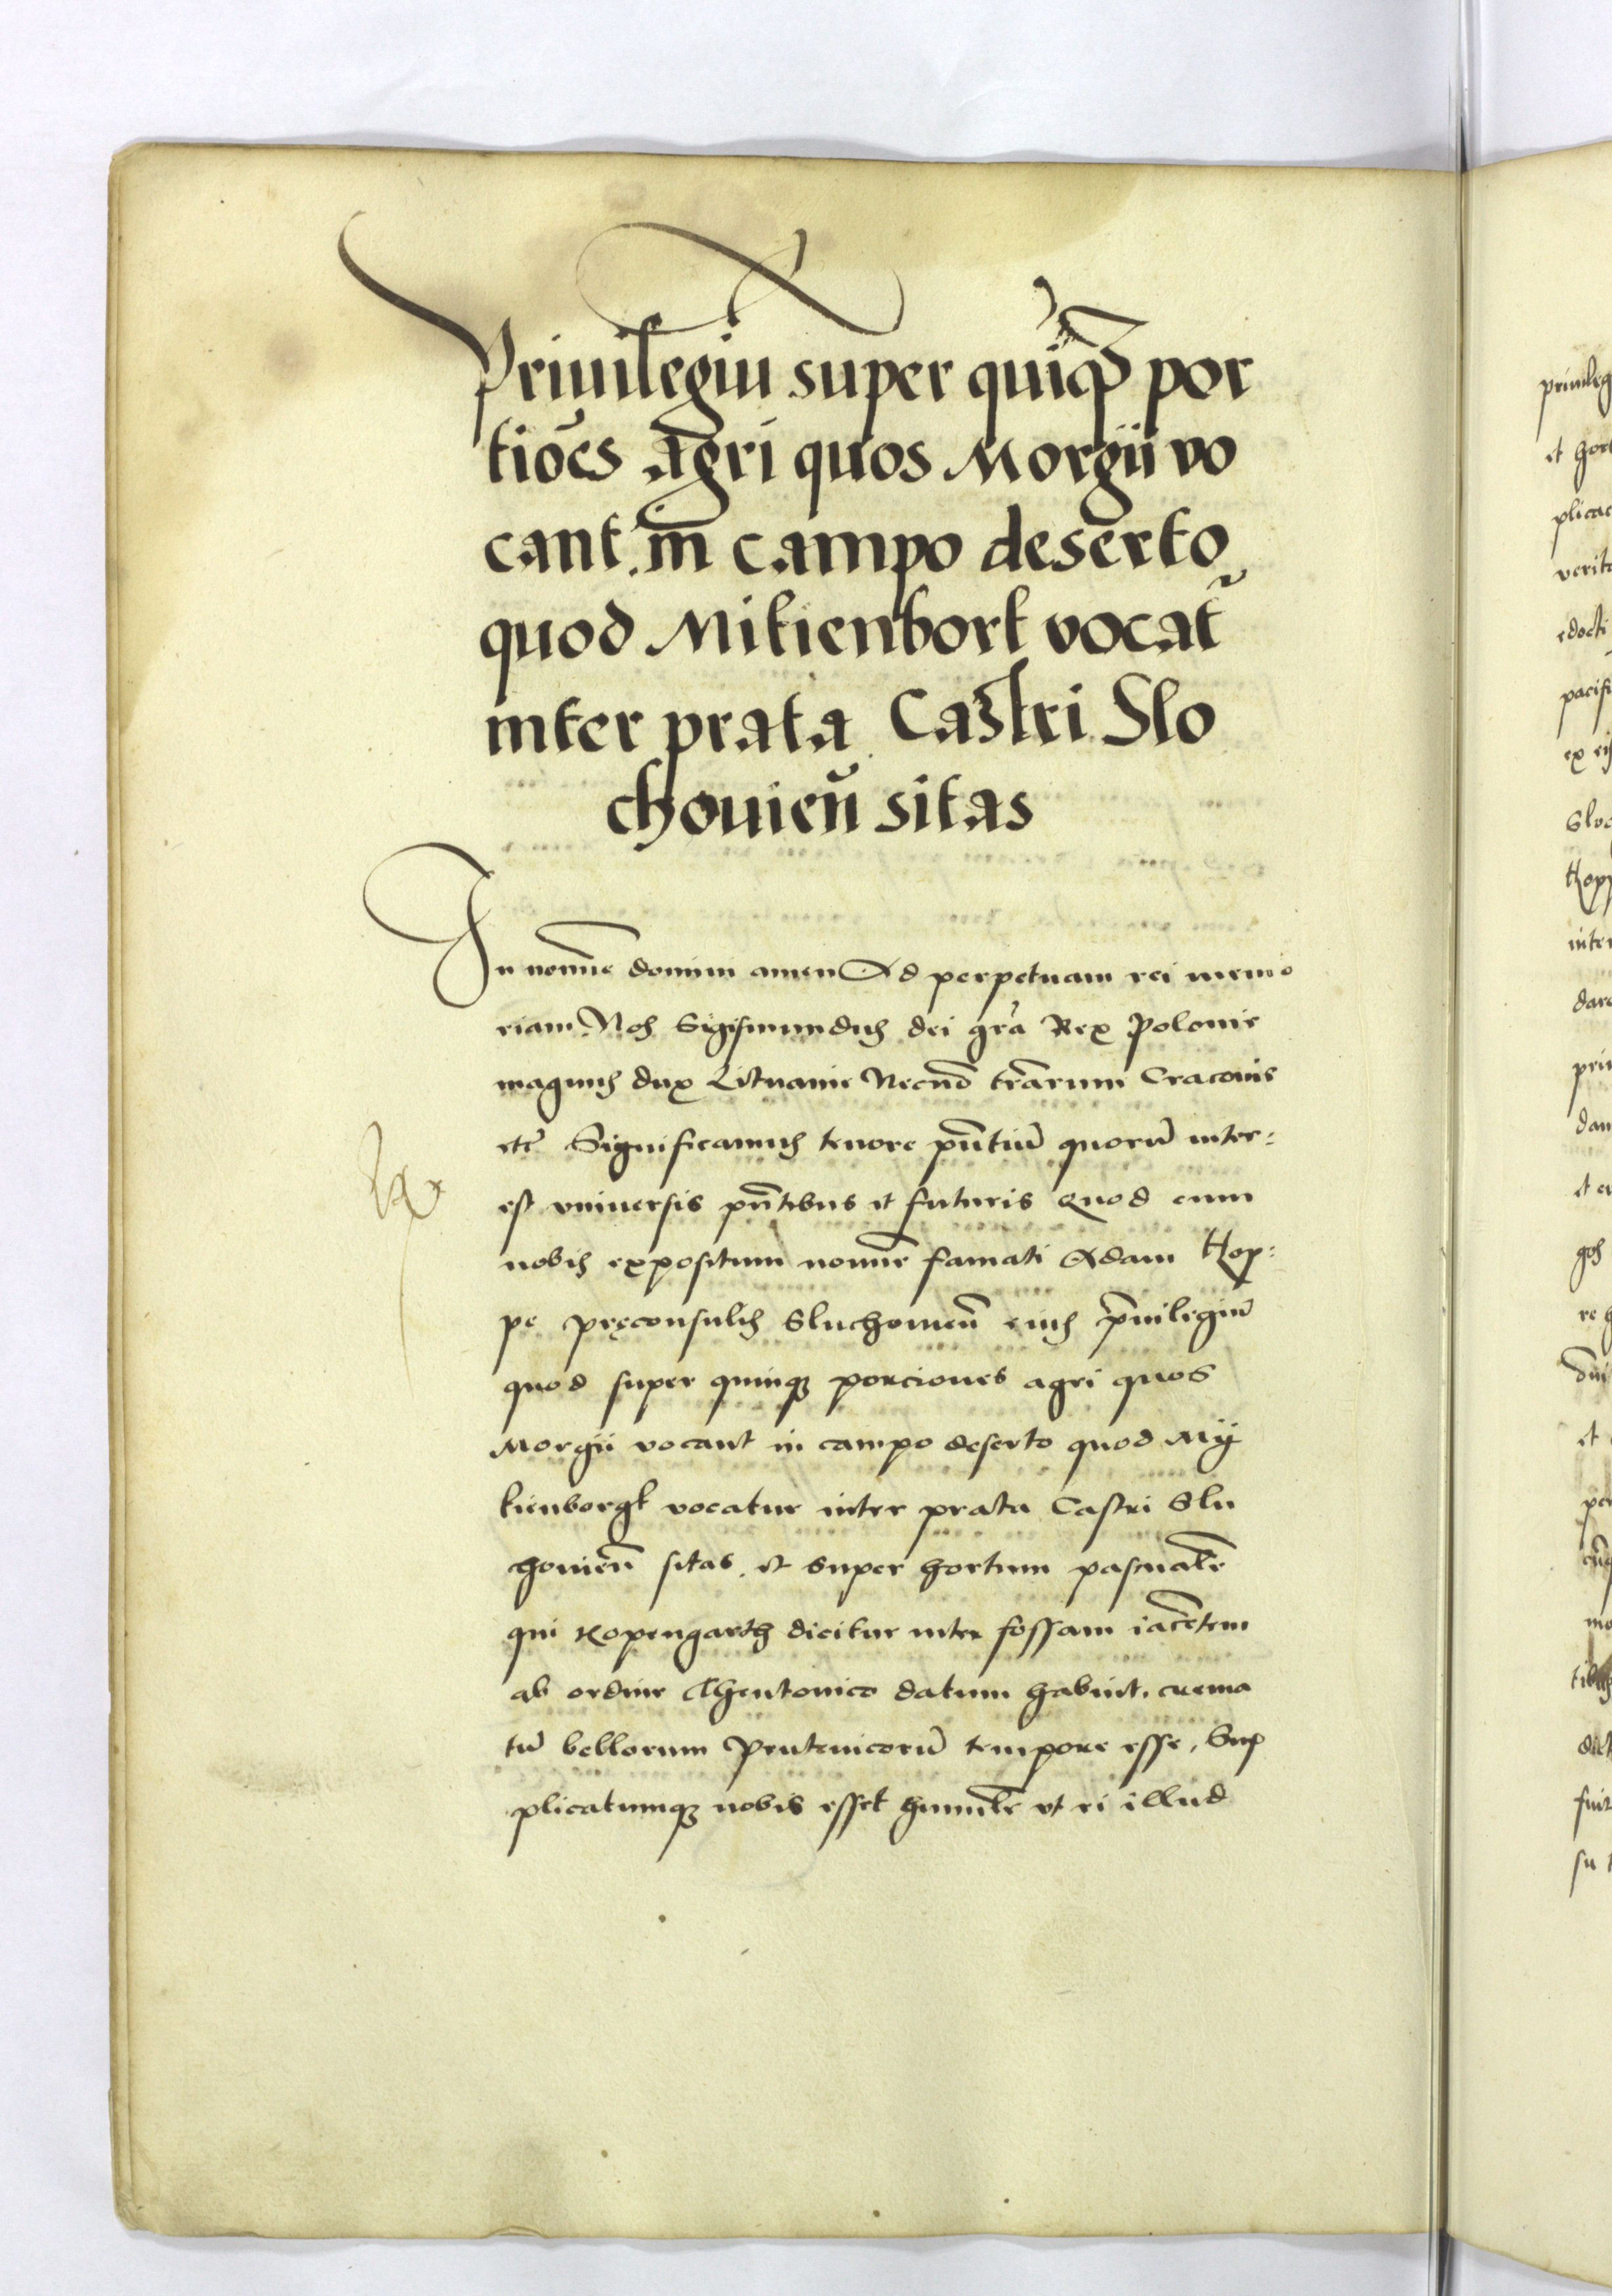 Priuilegiu super quiq̨ por
tiões Agri quos Morgii vo
cant in campo deserto
quod Mitienbort vocat
inter prata Castri Slo
chouień sitas
In noĩe domini amen Ad perpetuam rei memo
riam Nos Sigismundus dei gr̃a Rex Polonie
magnus dux Lituanie Necnõ tr̃arum Cracouie
etc̃ Significamus tenore pñtiũ quorũ inter:
est vniuersis pñtibus et futuris Quod cum
nobis expositum noĩe famati Adam Kop:
pe pręconsulis Sluchouieñ eius p̃uilegiũ
quod super quinq̨ porciones agri quos
Morgii vocant in campo deserto quod Mÿ
tienborgt vocatur inter prata Castri Slu
chouieñ sitas. et super hortum pascualẽ
qui Kopengarth dicitur inter fossam iacẽtem
ab ordine Theutonico datum habuit. crema
tũ bellorum Prutenicorũ tempore esse, Sup
plicatumq̨ nobis esset humilr̃ vt ei illud
priuileg
et hort
plicac
verita
edocti
pacifi
ex eis
Sluc
Kopp
inter
dare
priu
dam